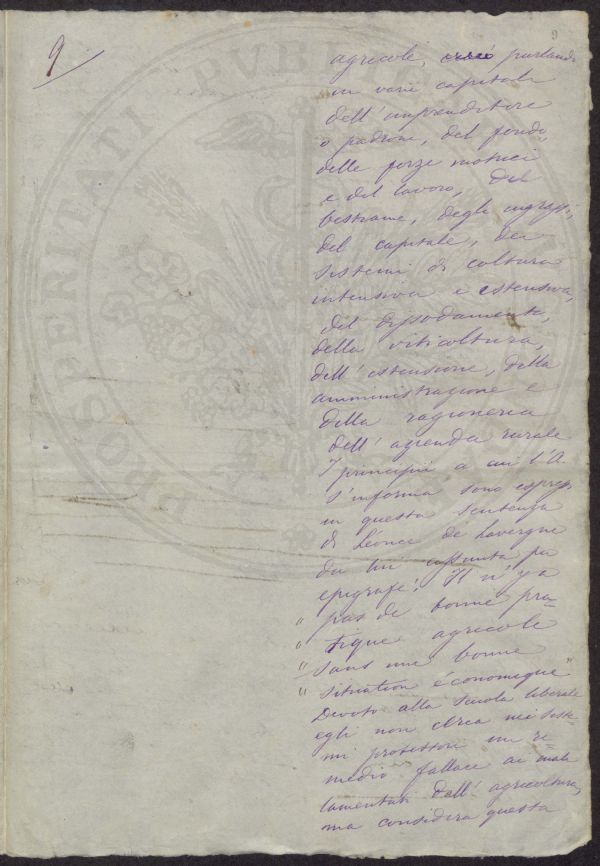 9
9
agricoli, cioè parlando
in varii capitoli
dell'imprenditore
o padrone, del fondo,
delle forze motrici
e del lavoro, del
bestiame, degli ingrassi,
del capitale, dei
sistemi di coltura
intensiva e estensiva,
del dissodamento,
della viticoltura,
dell'estensione, della
amministrazione e
della ragioneria
dell'azienda rurale
I principii a cui l'A.
s'informa sono espressi
in questa sentenza
di Léonce de Lavergne
da lui assunta per
epigrafe: Il n'y a
" pas de bonne pra=
" tique agricole
" sans une bonne
" situation économique"
Devoto alla scuola liberale
egli non cerca nei siste=
mi protettori un re=
medio fallace ai mali
lamentati dall'agricoltura,
ma considera questa
PROSPERITATI PVBLICAE